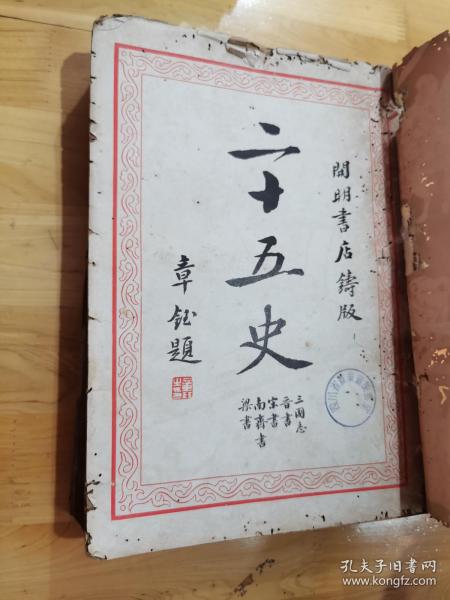 開明書店鑄版
二十五史
三國志
晉書
宋書
南齊書
梁書
章鈺題
孔夫子旧书网
www.kongfz.com